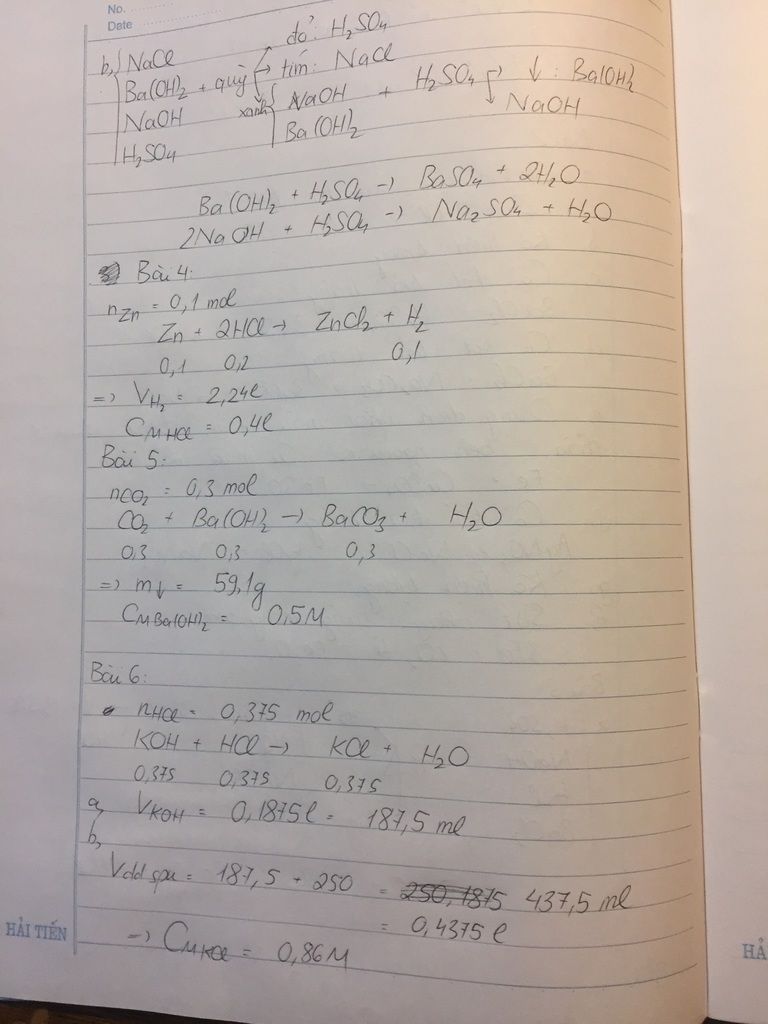 No.
Date
đỏ: H₂SO₄
b, NaCl
Ba(OH)₂ + quỳ → tím: NaCl
NaOH xanh NaOH + H₂SO₄ → ↓ : Ba(OH)₂
H₂SO₄ Ba(OH)₂ NaOH
Ba(OH)₂ + H₂SO₄ → BaSO₄ + 2H₂O
2NaOH + H₂SO₄ → Na₂SO₄ + H₂O
Bài 4:
nZn = 0,1 mol
Zn + 2HCl → ZnCl₂ + H₂
0,1 0,2 0,1
=> VH₂ = 2,24l
CMHCl = 0,4l
Bài 5:
nCO₂ = 0,3 mol
CO₂ + Ba(OH)₂ → BaCO₃ + H₂O
0,3 0,3 0,3
=> m↓ = 59,1g
CMBa(OH)₂ = 0,5M
Bài 6:
nHCl = 0,375 mol
KOH + HCl → KCl + H₂O
0,375 0,375 0,375
a, VKOH = 0,1875l = 187,5 ml
b,
Vdd spu = 187,5 + 250 = 250,1875 437,5 ml
= 0,4375 l
=> CMKCl = 0,86M
HẢI TIẾN
HẢ